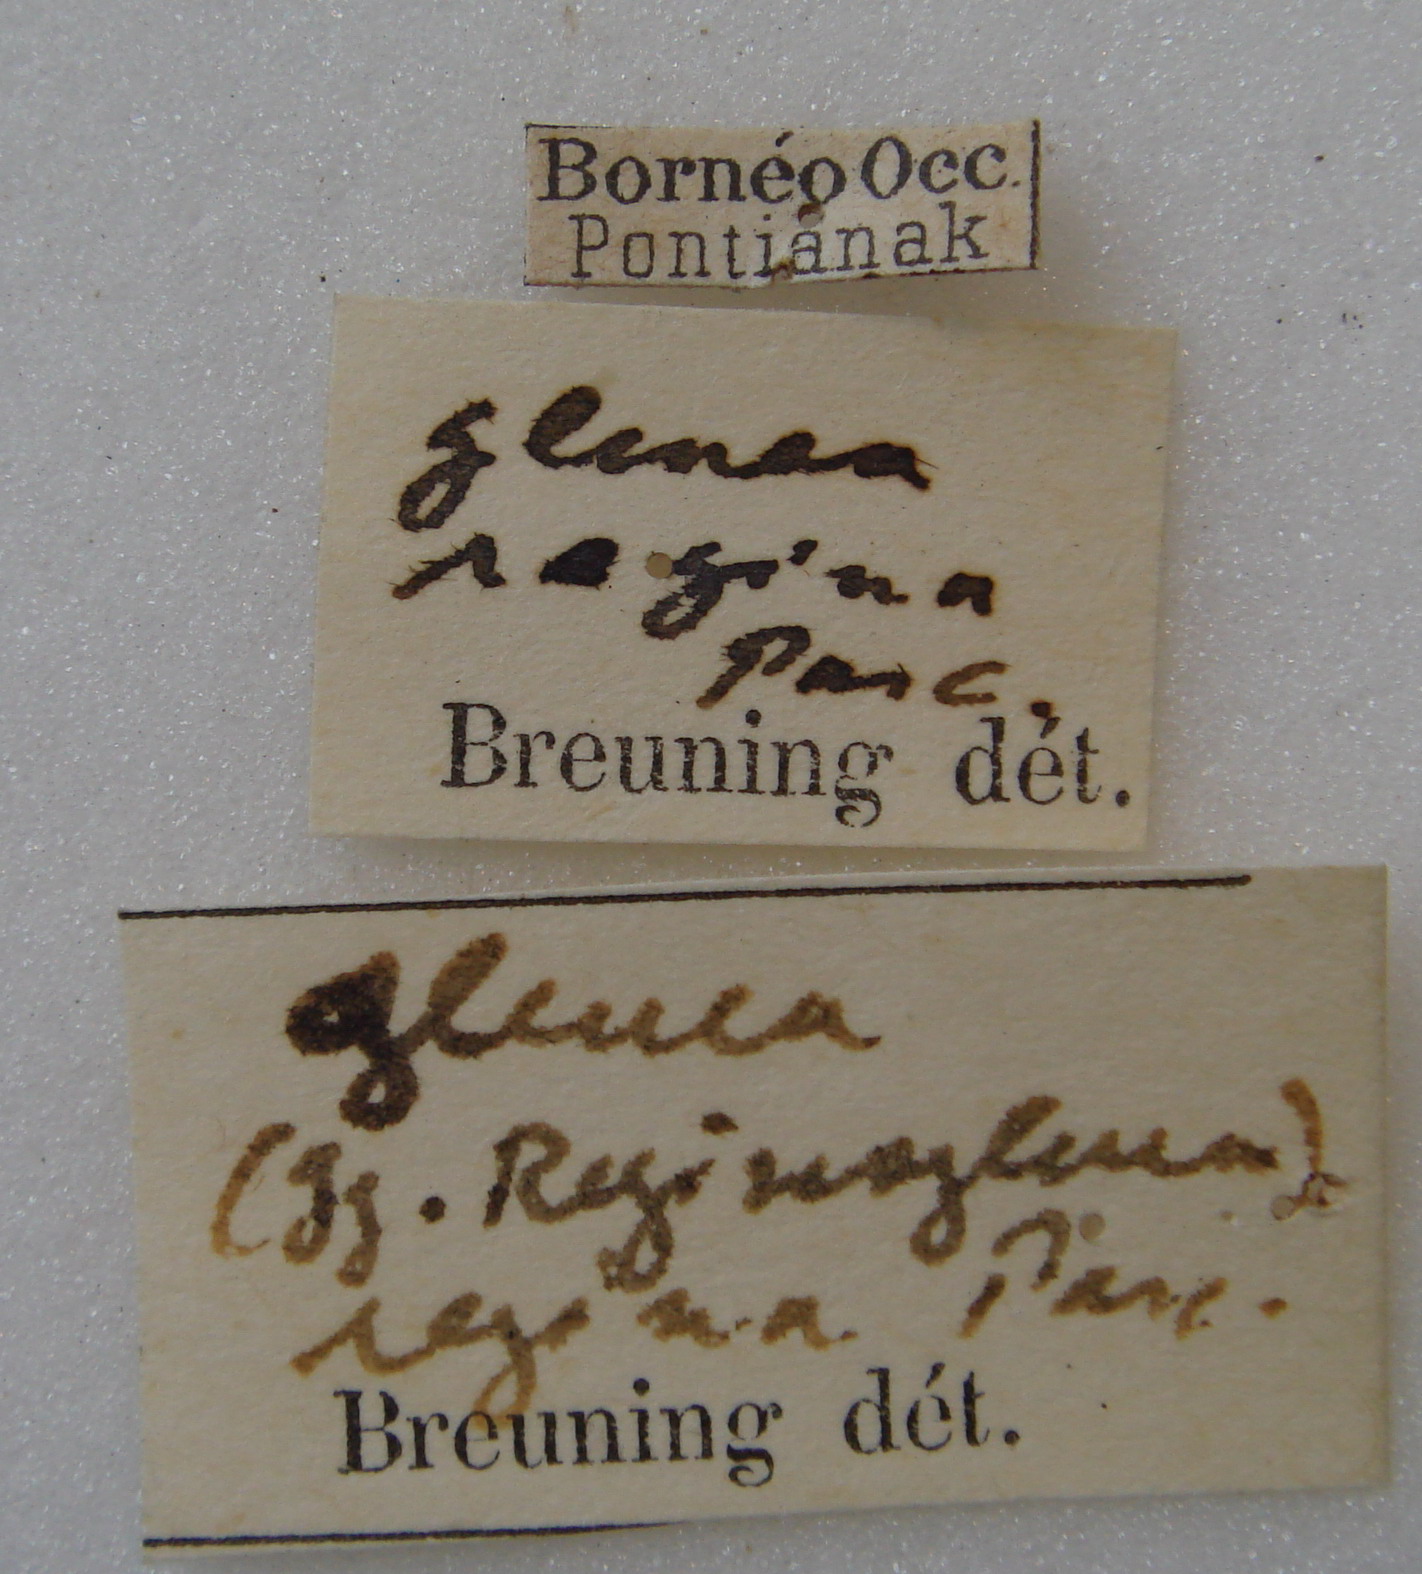 Bornéo Occ.
Pontianak
glenea
regina
Pasc.
Breuning dét.
glenea
(sg. Reginoglenea)
regina Pasc.
Breuning dét.